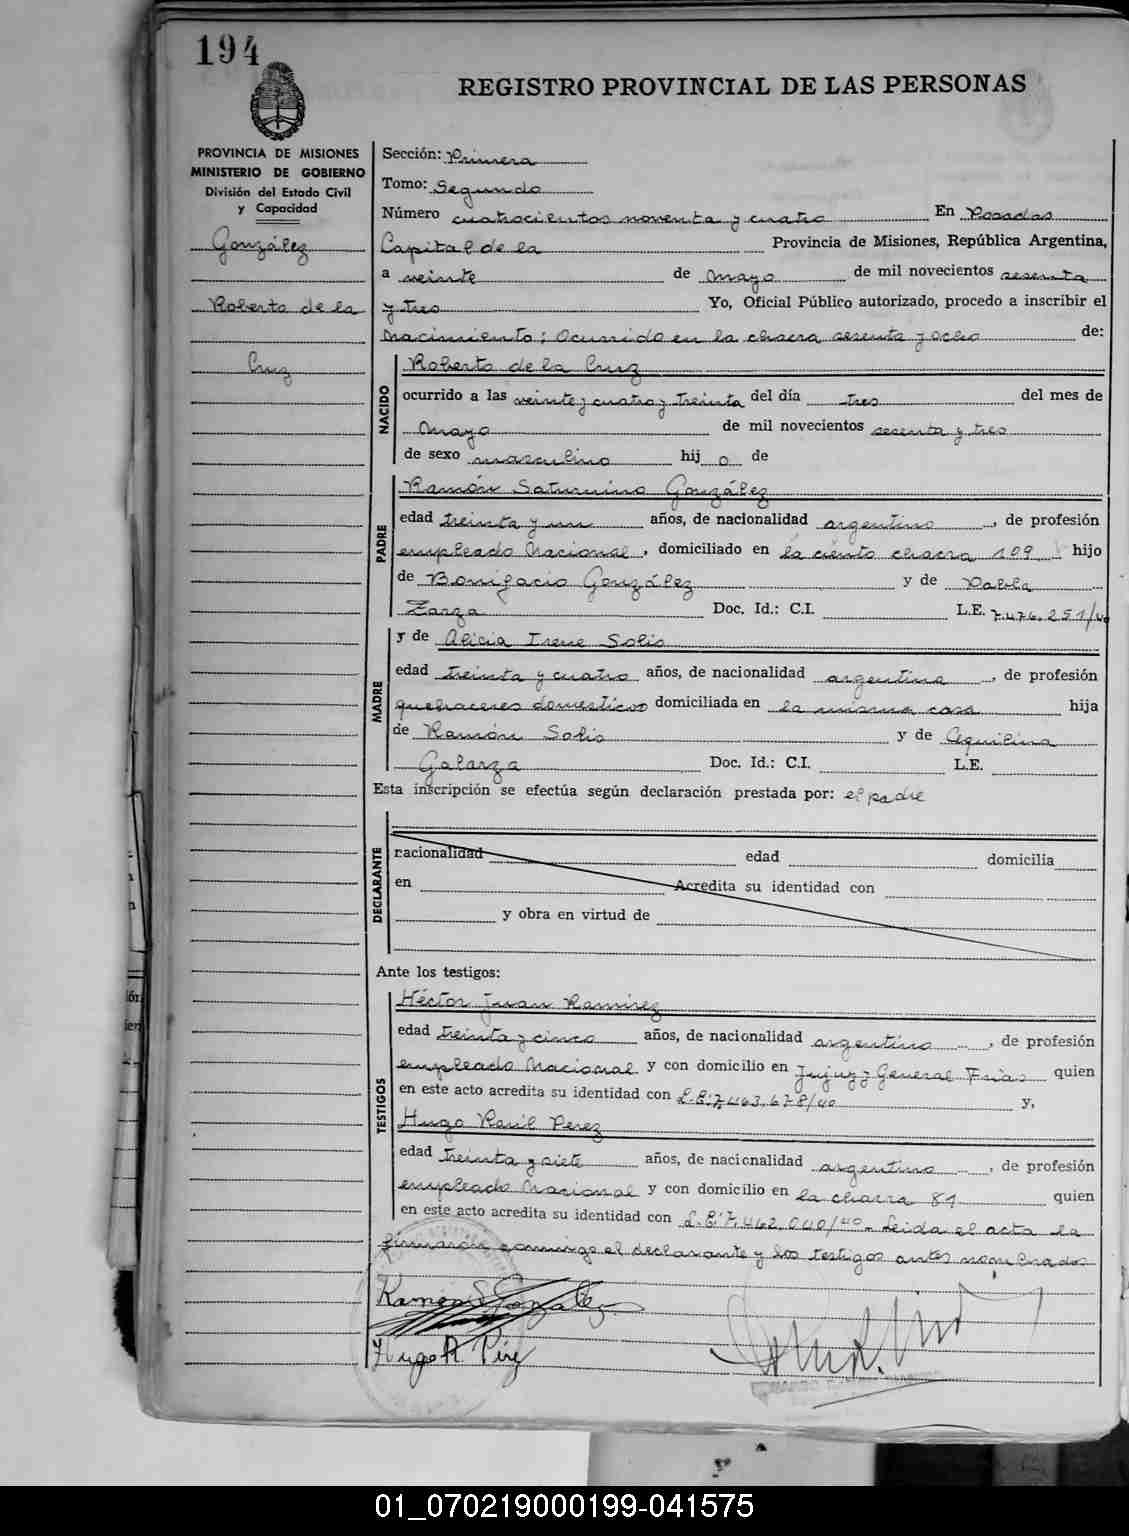 194
REGISTRO PROVINCIAL DE LAS PERSONAS
PROVINCIA DE MISIONES
MINISTERIO DE GOBIERNO
División del Estado Civil
y Capacidad
González
Roberto de la
Cruz
Sección: Primera
Tomo: Segundo
Número cuatrocientos noventa y cuatro En Posadas
Capital de la Provincia de Misiones, República Argentina,
a veinte de mayo de mil novecientos sesenta
y tres Yo, Oficial Público autorizado, procedo a inscribir el
nacimiento; ocurrido en la chacra sesenta y ocho de:
NACIDO
Roberto de la Cruz
ocurrido a las veinte y cuatro y treinta del día tres del mes de
mayo de mil novecientos sesenta y tres
de sexo masculino hij o de
PADRE
Ramón Saturnino González
edad treinta y un años, de nacionalidad argentino, de profesión
empleado Nacional, domiciliado en la ciento chacra 109 hijo
de Bonifacio González y de Pabla
Zarza Doc. Id.: C.I. L.E. 7.476.251/40
MADRE
y de Alicia Irene Solis
edad treinta y cuatro años, de nacionalidad argentina, de profesión
quehaceres domesticos domiciliada en la misma casa hija
de Ramón Solis y de Aquilina
Galarza Doc. Id.: C.I. L.E.
Esta inscripción se efectúa según declaración prestada por: el padre
DECLARANTE
nacionalidad edad domicilia
en Acredita su identidad con
y obra en virtud de
Ante los testigos:
TESTIGOS
Héctor Juan Ramirez
edad treinta y cinco años, de nacionalidad argentino, de profesión
empleado Nacional y con domicilio en Jujuy y General Frias quien
en este acto acredita su identidad con L.E: 7.463.678/40 y,
Hugo Raúl Perez
edad treinta y siete años, de nacionalidad argentino, de profesión
empleado Nacional y con domicilio en la chacra 81 quien
en este acto acredita su identidad con L.E: 7.462.040/40. Leida el acta la
firmaron conmigo el declarante y los testigos antes nombrados
Ramón S González
Hugo R. Pérez
01_070219000199-041575